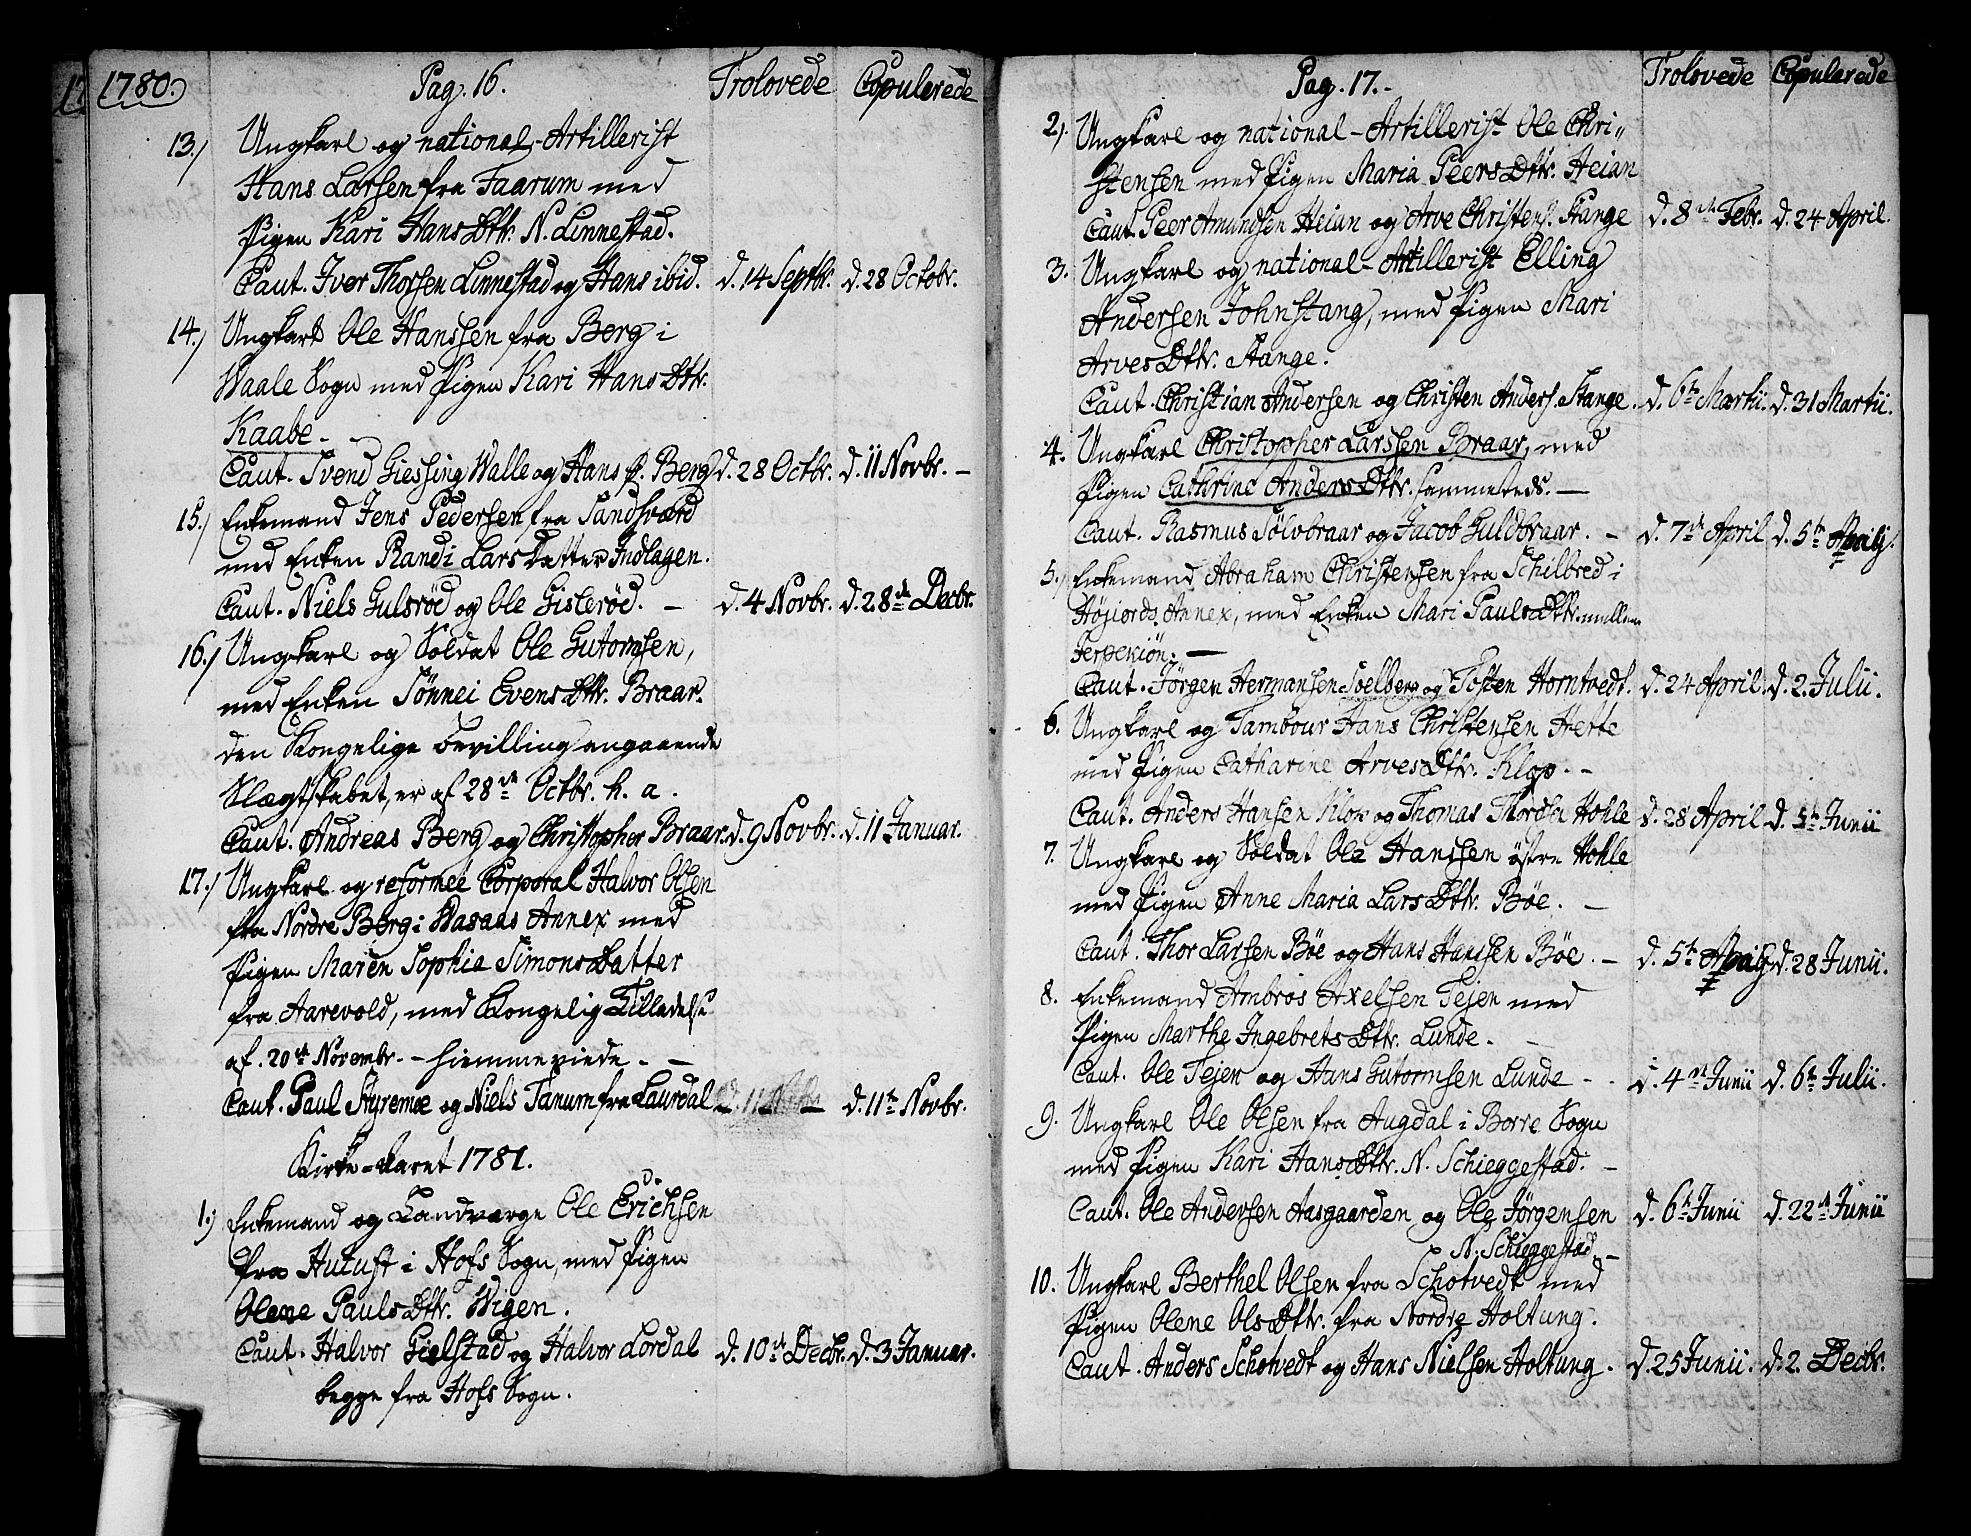 1780.
Pag. 16. Trolovede Copulerede
13.) Ungkarl og national-Artillerist
Hans Larsen fra Faarum med
Pigen Kari HansDttr. N. Linnestad.
Caut. Iver Thorsen Linnestad og Hans ibid. d. 14 Septbr. d. 28 Octobr.
14.) Ungkarl Ole Hanssen fra Berg i
Waale Sogn med Pigen Kari HansDttr.
Kaabe.
Caut. Svend Giessing Walle og Hans Berg d. 28 Octbr. d. 11 Novbr.
15.) Enkemand Jens Pedersen fra Sandsværd
med Enken Randi LarsDatter Indlagen.
Caut. Niels Gulsröd og Ole Gisteröd. d. 4 Novbr. d. 28de Decbr.
16.) Ungkarl og Soldat Ole Gutormsen,
med Enken Tönnei EvensDttr. Braar.
den Kongelige Bevilling angaaende
Slægtskabet, er af 28de Octbr. h. a.
Caut. Andreas Berg og Christopher Braar. d. 9 Novbr. d. 11 Januar.
17.) Ungkarl og reformet Corporal Halvor Olsen
fra Nordre Berg i Wasaas Annex med
Pigen Maren Sophia SimonsDatter
fra Aarevold, med Kongelig Tilladelse
af 20de Novembr. - hiemmeviede.
Caut. Paul Styremoe og Niels Tanum fra Laurdal d. 11te Novbr.
Kirke-Aaret 1781.
1.) Enkemand og Landværge Ole Erichsen
fra Hutuft i Hofs Sogn, med Pigen
Olene PaulsDttr. Wigen.
Caut. Halvor Gielstad og Halvor Lordal d. 10de Decbr. d. 3 Januar.
begge fra Hofs Sogn.
Pag. 17. Trolovede Copulerede
2). Ungkarl og national-Artillerist Ole Chri-
stensen med Pigen Maria PeersDttr. Heian
Caut. Peer Amundsen Heian og Arve Christens. Stange d. 8de Febr. d. 24 April.
3. Ungkarl og national-Artillerist Elling
Andersen Johnstang, med Pigen Mari
ArvesDttr. Stange.
Caut. Christian Andersen og Christen Anders. Stange. d. 6te Martii. d. 31 Martii.
4. Ungkarl Christopher Larssen Braar, med
Pigen Cathrine AndersDttr. sammeteds.
Caut. Rasmus Sölvbraar og Jacob Guldbraar. d. 7de April d. 5te
5.) Enkemand Abraham Christensen fra Schilbred i
Höijords Annex, med Enken Mari PaulsDttr. mellem
Jerpekiön.
Caut. Jörgen Hermansen Soelberg og Tosten Horntvedt. d. 24 April. d. 2. Julii.
6. Ungkarl og Tambour Hans Christensen Hette
med Pigen Catharine ArvesDttr. Klop.
Caut. Anders Hansen Klop og Thomas Hohle d. 28 April d. 5te Junii
7. Ungkarl og Soldat Ole Hanssen östre Hohle
med Pigen Anne Maria LarsDttr. Böe.
Caut. Thor Larsen Böe og Hans Hanssen Böe. d. 5te d. 28 Junii.
8. Enkemand Ambros Axelsen Tejen med
Pigen Marthe IngebretsDttr. Lunde.
Caut. Ole Tejen og Hans Gutormsen Lunde d. 4de Junii d. 6te Julii.
9. Ungkarl Ole Olsen fra Augdal i Borre Sogn
med Pigen Kari HansDttr. N. Schieggestad.
Caut. Ole Andersen Aasgaarden og Ole Jörgensen d. 6te Junii d. 22de Junii
N. Schieggestad.
10. Ungkarl Berthel Olsen fra Schotvedt med
Pigen Olene OlsDttr. fra Nordre Holtung.
Caut. Anders Schotvedt og Hans Nielsen Holtung. d. 25 Junii. d. 2. Decbr.